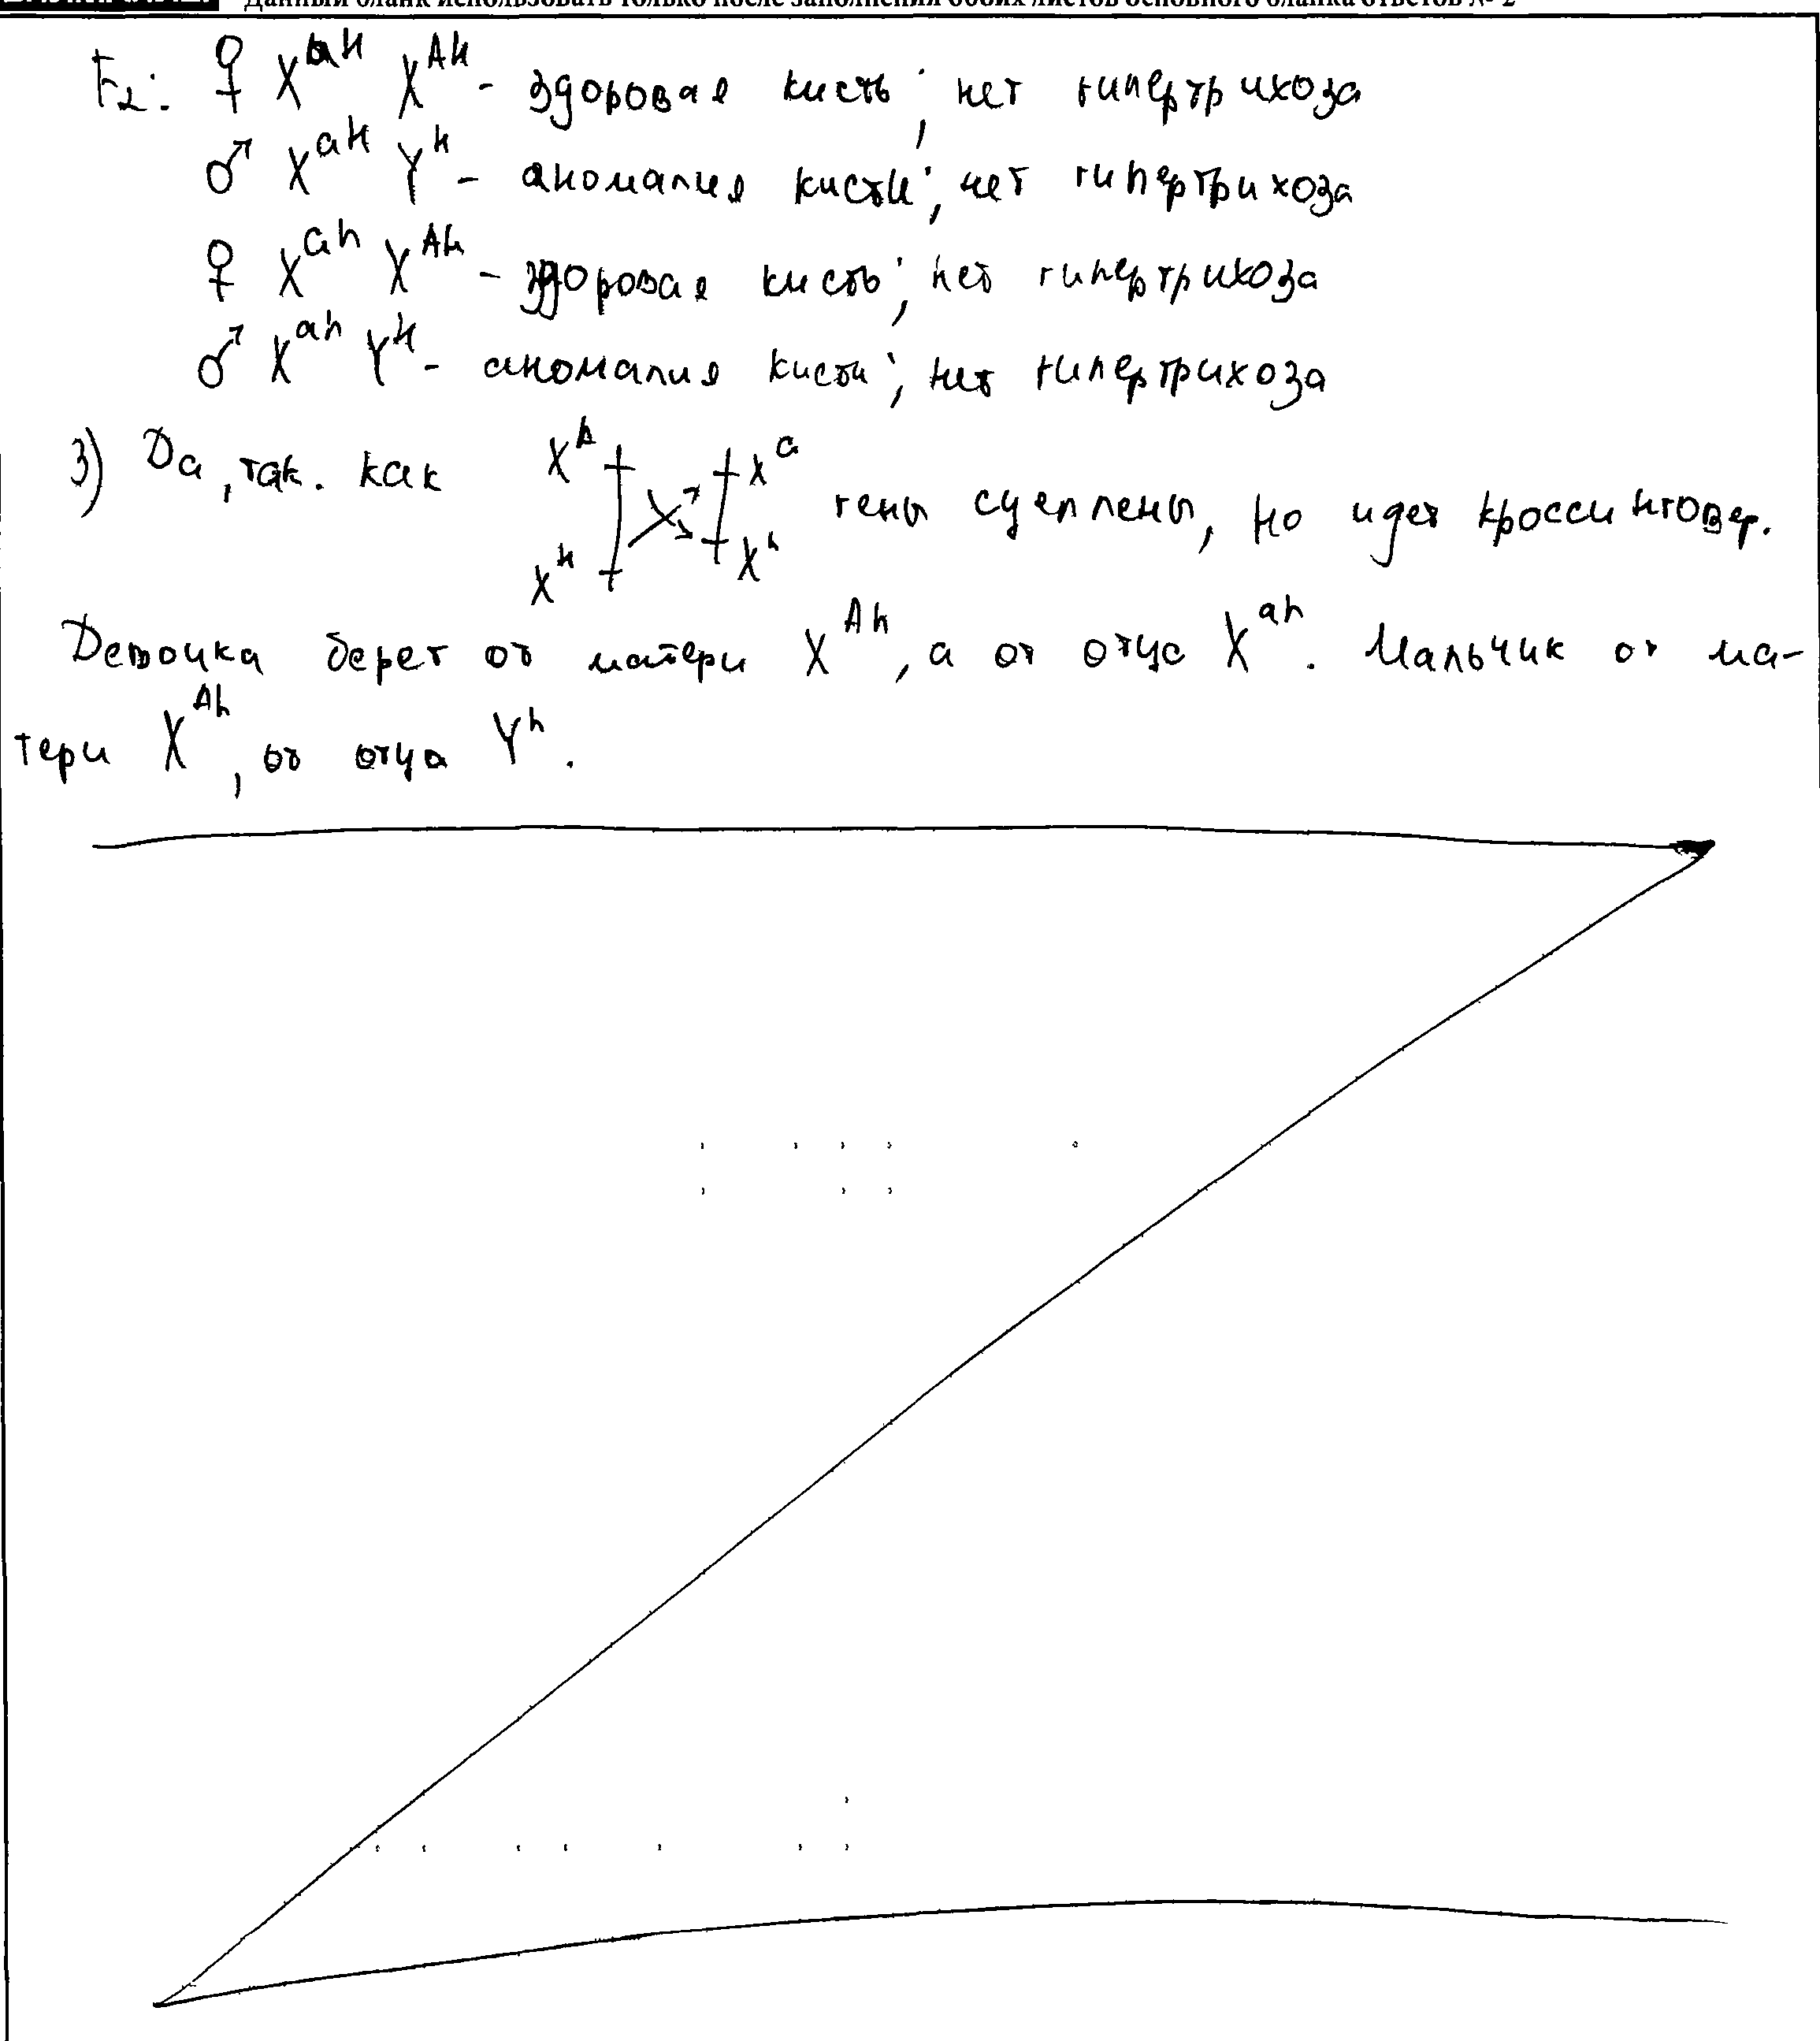 Данный бланк использовать только после заполнения обоих листов основного бланка ответов № 2
F₂: ♀ X^aH X^AH - здоровая кисть; нет гипертрихоза
♂ X^aH Y^H - аномалия кисти; нет гипертрихоза
♀ X^ah X^AH - здоровая кисть; нет гипертрихоза
♂ X^ah Y^H - аномалия кисти; нет гипертрихоза
3) Да, так. как X^A X^a
гены сцеплены, но идет кроссинговер.
X^H X^h
Девочка берет от матери X^Ah, а от отца X^ah. Мальчик от ма-
тери X^Ah, от отца Y^h.